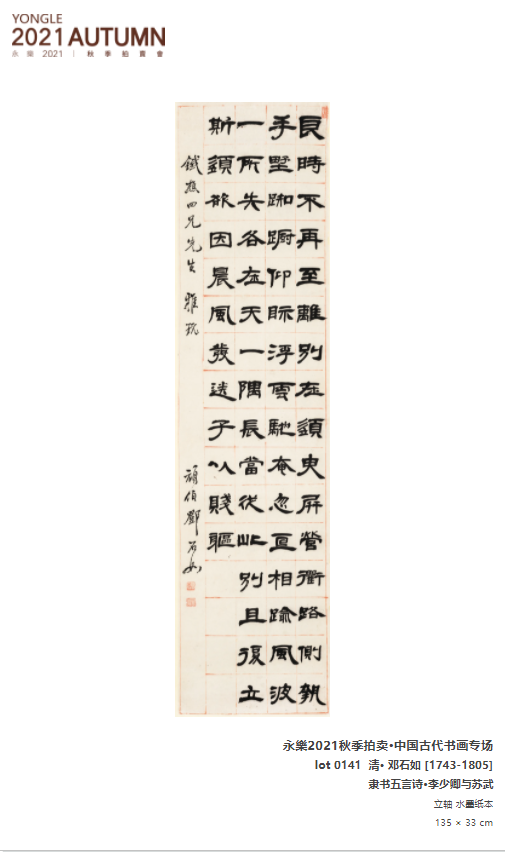 YONGLE
2021 AUTUMN
永樂 2021 | 秋季拍賣會
良時不再至離別在須臾屏營衢路側執
手墅踟躕仰眎浮雲馳奄忽互相踰風波
一所失各在天一隅長當從此別且復立
斯須欲因晨風發送子以賤軀
四兄先生 雅玩
頑伯鄧石如
永樂2021秋季拍卖•中国古代书画专场
lot 0141 清• 邓石如 [1743-1805]
隶书五言诗•李少卿与苏武
立轴 水墨纸本
135 × 33 cm